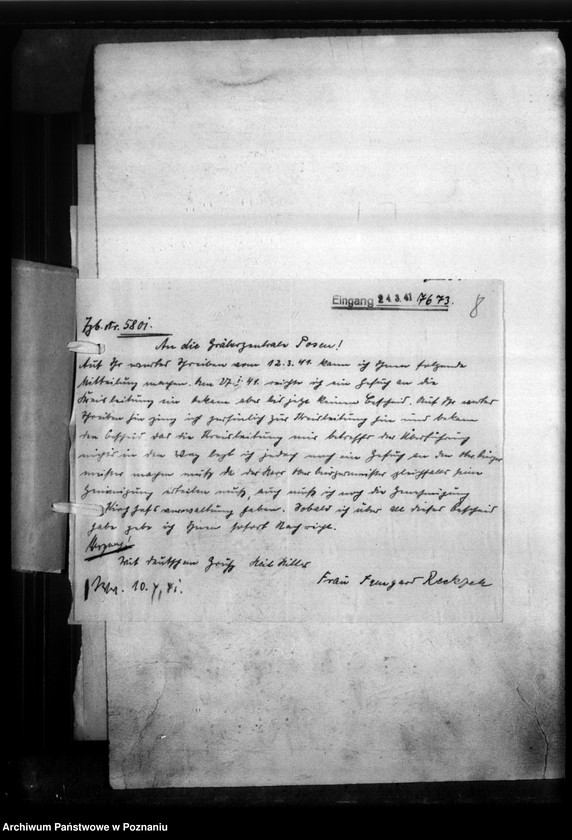 Eingang 24.3.41 7673.
8
Tgb. Nr. 5801.
An die Gräberzentrale Posen!
Auf Ihr wertes Schreiben vom 12.3.41. kann ich Ihnen folgende
Mitteilung machen. Am 27. 1. 41. reichte ich ein Gesuch an die
Kreisleitung ein bekam aber bis jetzt keinen Bescheid. Auf Ihr wertes
Schreiben hin ging ich persönlich zur Kreisleitung hin und bekam
den Bescheid das die Kreisleitung mir betreffs der Überführung
nichts in den Weg legt ich jedoch noch ein Gesuch an den Oberbürger
meister machen muß da der Herr Oberbürgermeister gleichfalls seine
Genemigung erteilen muß, auch muß ich noch die Genehmigung
Kirchhofsverwaltung haben. Sobald ich über all dieses Bescheid
habe gebe ich Ihnen sofort Nachricht.
Mit deutschem Gruß Heil Hitler
Frau Irmgard
10.
Archiwum Państwowe w Poznaniu